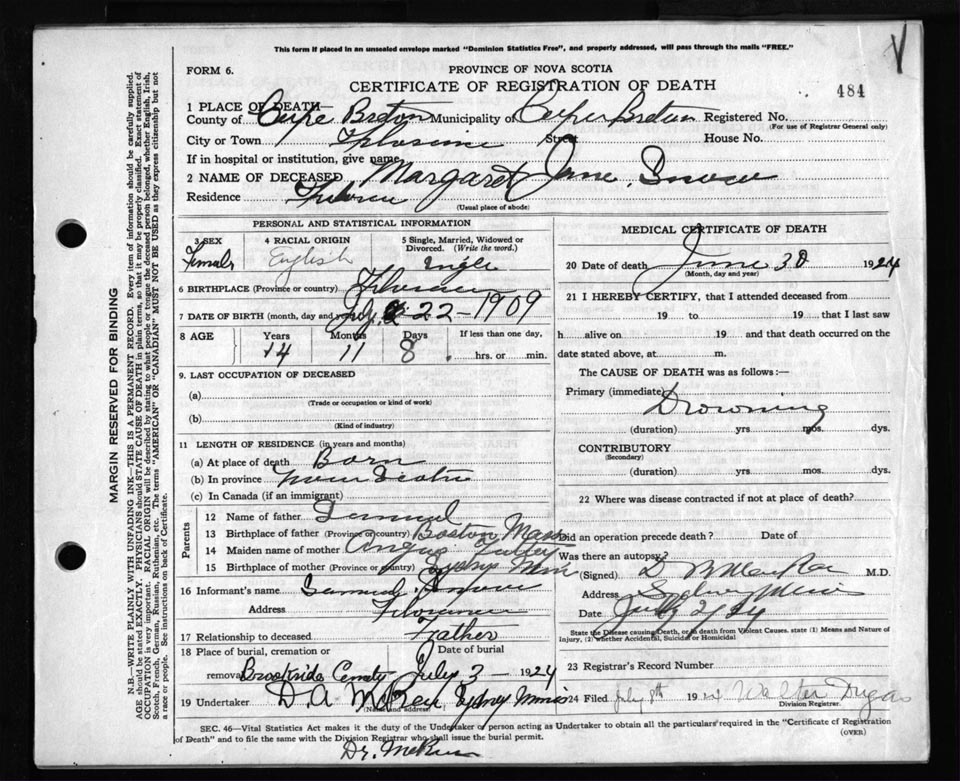 This form if placed in an unsealed envelope marked "Dominion Statistics Free", and properly addressed, will pass through the mails "FREE."
FORM 6.
PROVINCE OF NOVA SCOTIA
CERTIFICATE OF REGISTRATION OF DEATH
484
1 PLACE OF DEATH—
County of Cape Breton Municipality of Cape Breton Registered No.
(For use of Registrar General only)
City or Town Florence Street House No.
If in hospital or institution, give name
2 NAME OF DECEASED Margaret Jane Snow
Residence Florence
(Usual place of abode)
PERSONAL AND STATISTICAL INFORMATION
3 SEX Female
4 RACIAL ORIGIN English
5 Single, Married, Widowed or Divorced. (Write the word.)
6 BIRTHPLACE (Province or country) Florence
7 DATE OF BIRTH (month, day and year) July 22-1909
8 AGE Years 14 Months 11 Days 8 If less than one day, hrs. or min.
9. LAST OCCUPATION OF DECEASED
(a)
(Trade or occupation or kind of work)
(b)
(Kind of industry)
11 LENGTH OF RESIDENCE (in years and months)
(a) At place of death Born
(b) In province Nova Scotia
(c) In Canada (if an immigrant)
Parents
12 Name of father Samuel
13 Birthplace of father (Province or country) Boston Mass
14 Maiden name of mother
15 Birthplace of mother (Province or country) Sydney Mines
16 Informant's name Samuel Snow
Address Florence
17 Relationship to deceased Father
18 Place of burial, cremation or removal Brookside Cemetery Date of burial July 3-1924
19 Undertaker D. A. Sydney Mines
(Name and address)
MEDICAL CERTIFICATE OF DEATH
20 Date of death June 30 1924
(Month, day and year)
21 I HEREBY CERTIFY, that I attended deceased from
19 to 19 that I last saw
h alive on 19 and that death occurred on the
date stated above, at m.
The CAUSE OF DEATH was as follows:—
Primary (immediate) Drowning
(duration) yrs. mos. dys.
CONTRIBUTORY
(Secondary)
(duration) yrs. mos. dys.
22 Where was disease contracted if not at place of death?
Did an operation precede death? Date of
Was there an autopsy?
(Signed) M.D.
Address Sydney Mines
Date July 2/24
State the Disease causing Death, or in death from Violent Causes, state (1) Means and Nature of
Injury, (2) whether Accidental, Suicidal or Homicidal
23 Registrar's Record Number
24 Filed July 8th 19 Walter Dugas
Division Registrar.
SEC. 46—Vital Statistics Act makes it the duty of the Undertaker or person acting as Undertaker to obtain all the particulars required in the "Certificate of Registration
of Death" and to file the same with the Division Registrar who shall issue the burial permit.
(OVER)
MARGIN RESERVED FOR BINDING
N.B.—WRITE PLAINLY WITH UNFADING INK—THIS IS A PERMANENT RECORD. Every item of information should be carefully supplied.
AGE should be stated EXACTLY. PHYSICIANS should STATE CAUSE OF DEATH in plain terms, so that it may be properly classified. Exact statement of
OCCUPATION is very important. RACIAL ORIGIN will be described by stating to what people or tongue the deceased person belonged, whether English, Irish,
Scotch, French, German, Russian, Ruthenian, etc. The terms "AMERICAN" or "CANADIAN" MUST NOT BE USED as they express citizenship but not
a race or people. See instructions on back of Certificate.